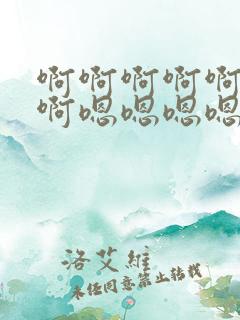 啊啊啊啊啊
啊嗯嗯嗯嗯
洛艾維
未经同意禁止转载